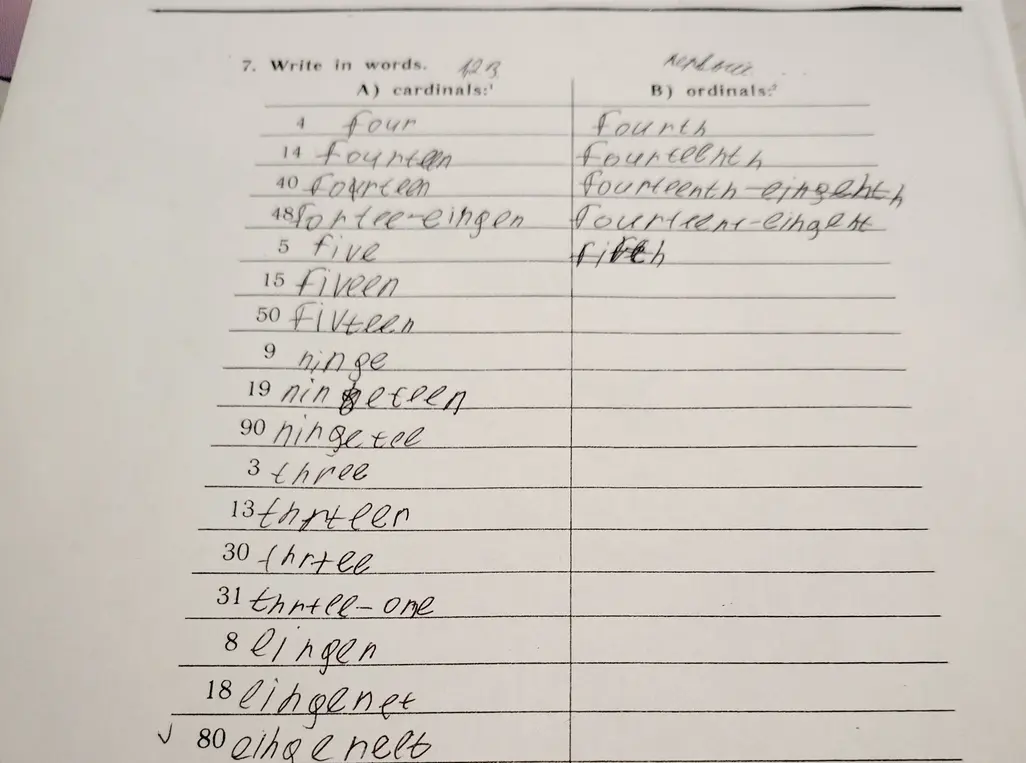 7. Write in words. 123 первые
A) cardinals:¹ B) ordinals:²
4 four fourth
14 fourteen fourteenth
40 fourteen fourteenth-eingehth
48 fortee-eingen fourteent-eingent
5 five fifth
15 fiveen
50 fivteen
9 ninge
19 ningeteen
90 ningetee
3 three
13 thrteen
30 thrtee
31 thrtee-one
8 eingen
18 eingenet
80 eingeneet